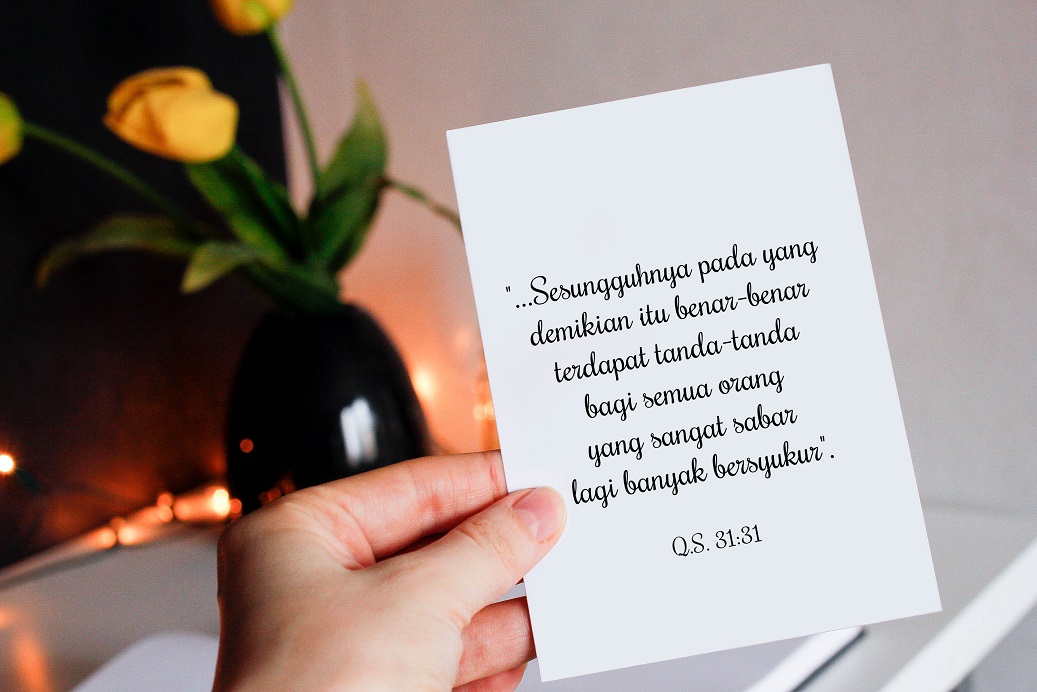 "...Sesungguhnya pada yang
demikian itu benar-benar
terdapat tanda-tanda
bagi semua orang
yang sangat sabar
lagi banyak bersyukur".
Q.S. 31:31